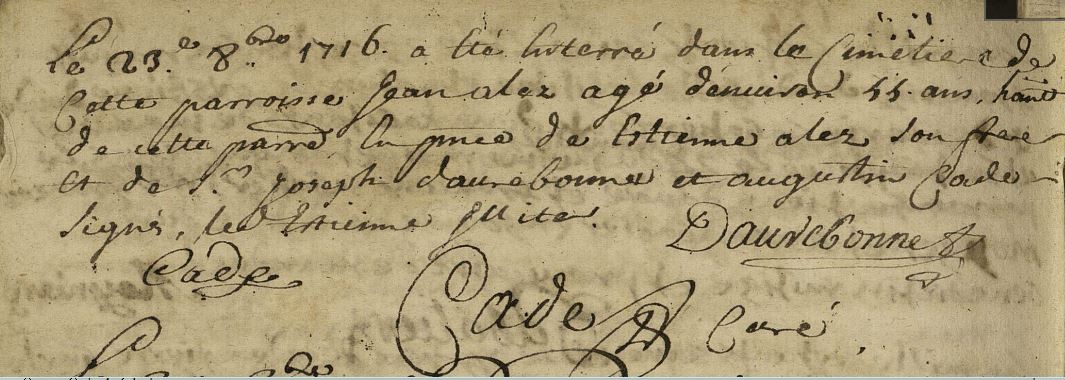 Le 23.e 8.bre 1716. a êté Enterré dans le Cimetiere de
Cette parroisse Jean alez agé d'enuiron 55. ans, hant
de cette parre En pnce de Estienne alez son frere
Et de S.r Joseph daurebonne et augustin Cade
signés, led Estienne illite.
Daurebonne
Cade
Cade Curé